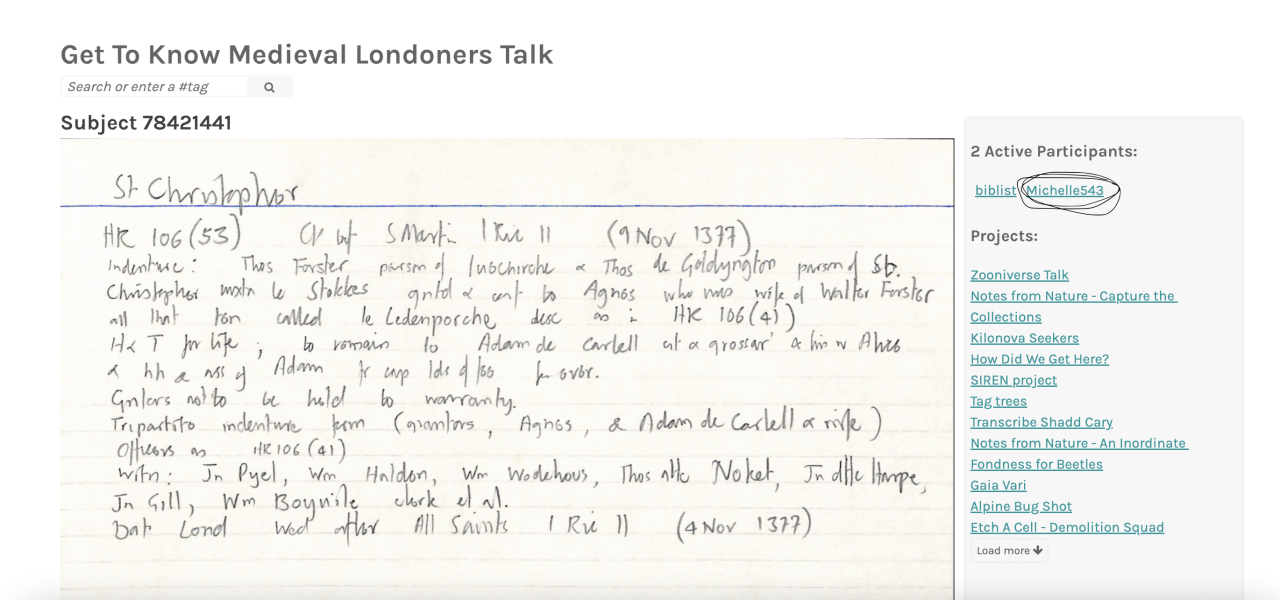 Get To Know Medieval Londoners Talk
Search or enter a #tag
Subject 78421441
St Christopher
HR 106 (53) S Martin 1 Ric II (9 Nov 1377)
Indenture: Thos Forster parson of & Thos de Goldyngton parson of St.
Christopher le Stokkes & to Agnes who was wife of Walter Forster
all that called le Ledenporche desc as in HR 106 (41)
for life; to remain to Adam de Carlell
& of Adam for ever.
not to be held to warranty.
Tripartite indenture form (grantors, Agnes, & Adam de Carlell & wife)
Officers as HR 106 (41)
Witn: Jn Pyel, Wm Haldon, Wm Wodehous, Thos atte Noket, Jn
Jn Gill, Wm clerk et al.
Dat Lond Wed after All Saints 1 Ric II (4 Nov 1377)
2 Active Participants:
biblist Michelle543
Projects:
Zooniverse Talk
Notes from Nature - Capture the
Collections
Kilonova Seekers
How Did We Get Here?
SIREN project
Tag trees
Transcribe Shadd Cary
Notes from Nature - An Inordinate
Fondness for Beetles
Gaia Vari
Alpine Bug Shot
Etch A Cell - Demolition Squad
Load more